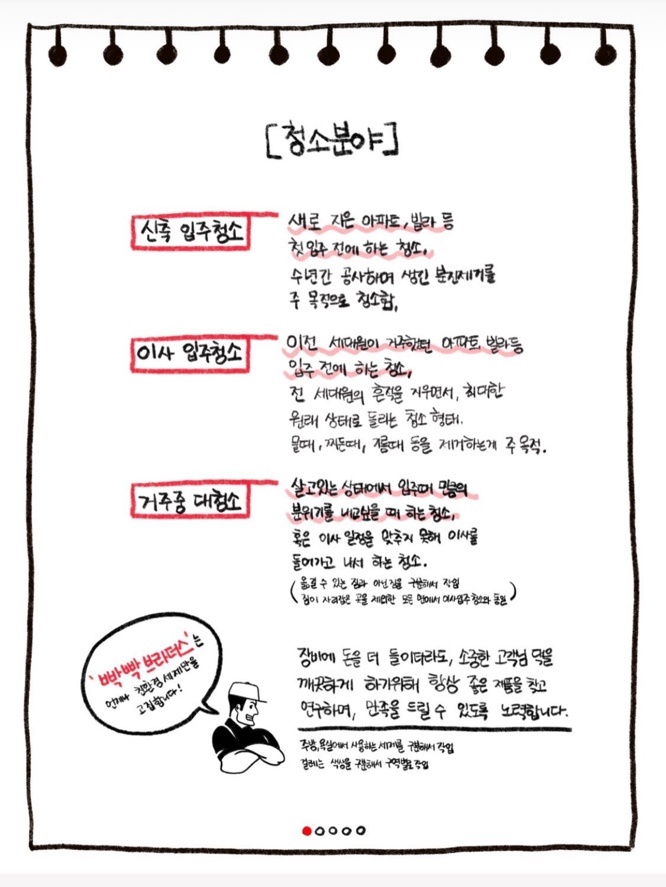 [청소분야]
신축 입주청소
새로 지은 아파트, 빌라 등
첫입주 전에 하는 청소.
수년간 공사하며 생긴 분진제거를
주 목적으로 청소함.
이사 입주청소
이전 세대원이 거주했던 아파트, 빌라등
입주 전에 하는 청소.
전 세대원의 흔적을 지우면서, 최대한
원래 상태로 돌리는 청소 형태.
물때, 찌든때, 기름때 등을 제거하는게 주 목적.
거주중 대청소
살고있는 상태에서 입주때 만큼의
분위기를 내고싶을 때 하는 청소.
혹은 이사 일정을 맞추지 못해 이사를
들어가고 나서 하는 청소.
(옮길 수 있는 짐과 아닌짐을 구분해서 작업
짐이 자리잡은 곳을 제외한 모든 면에서 이사입주청소와 동일)
'빡빡 브라더스'는
언제나 친환경 세제만을
고집합니다!
장비에 돈을 더 들이더라도, 소중한 고객님 댁을
깨끗하게 하기위해 항상 좋은 제품을 찾고
연구하며, 만족을 드릴 수 있도록 노력합니다.
주방, 욕실에서 사용하는 세제를 구분해서 작업
걸레는 색상을 구분해서 구역별로 작업